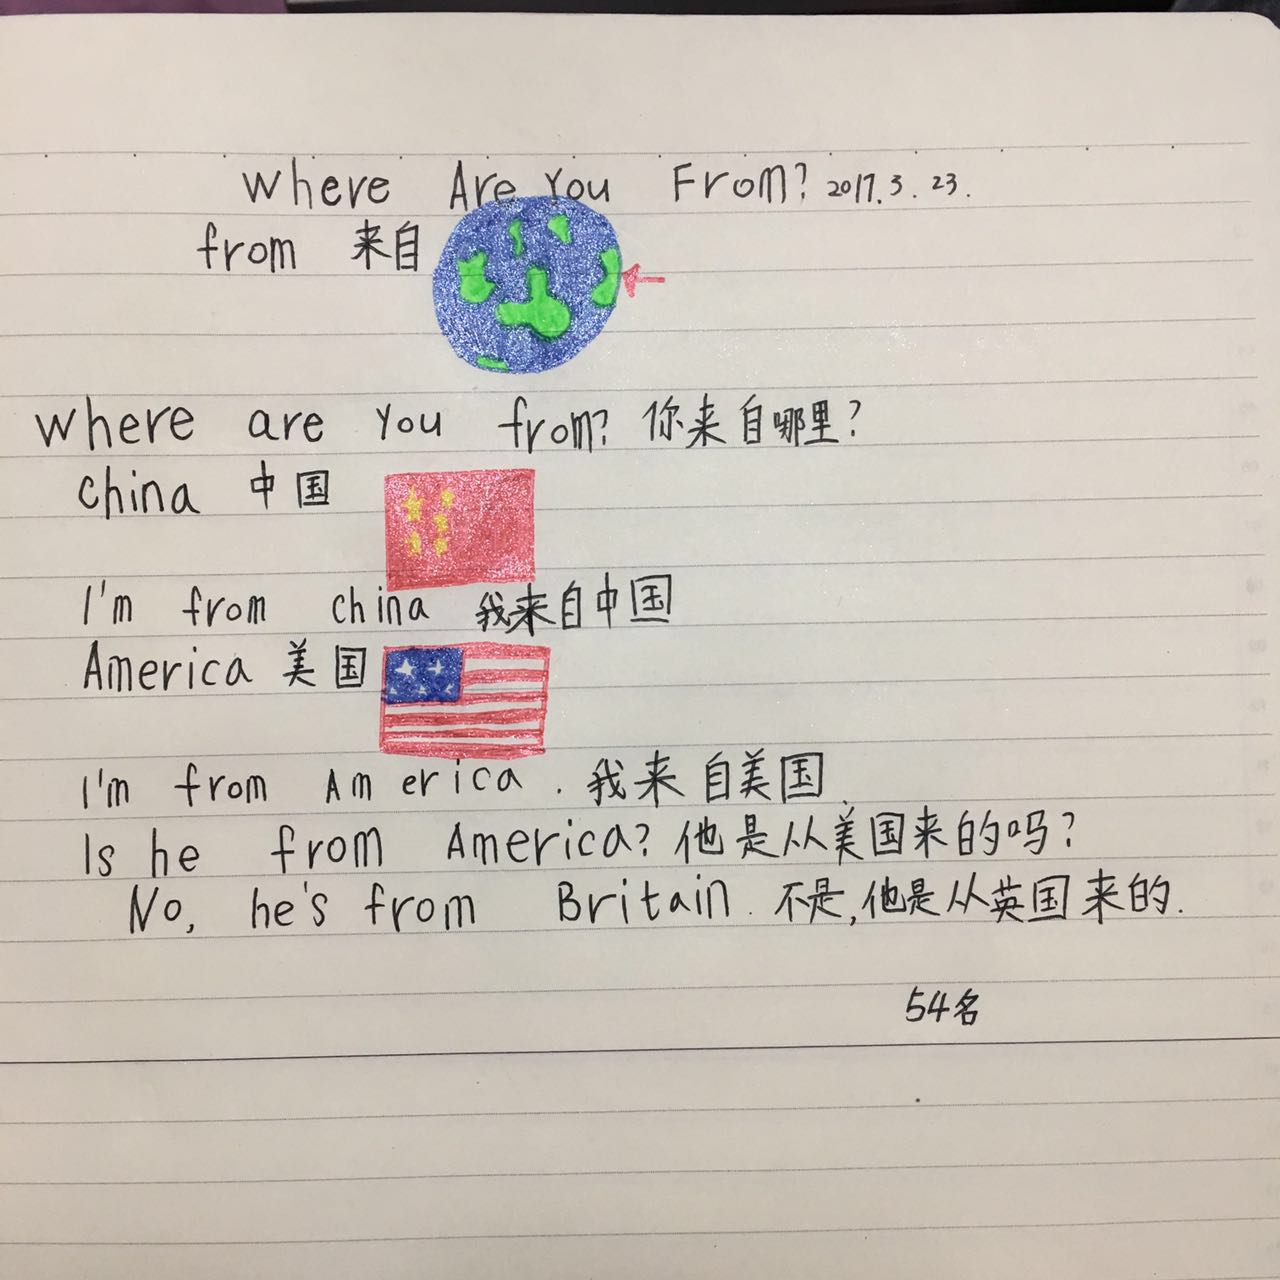 Where Are You From? 2017.3.23.
from 来自
Where are You from? 你来自哪里?
China 中国
I'm from china 我来自中国
America 美国
I'm from America. 我来自美国.
Is he from America? 他是从美国来的吗?
No, he's from Britain. 不是,他是从英国来的.
54名